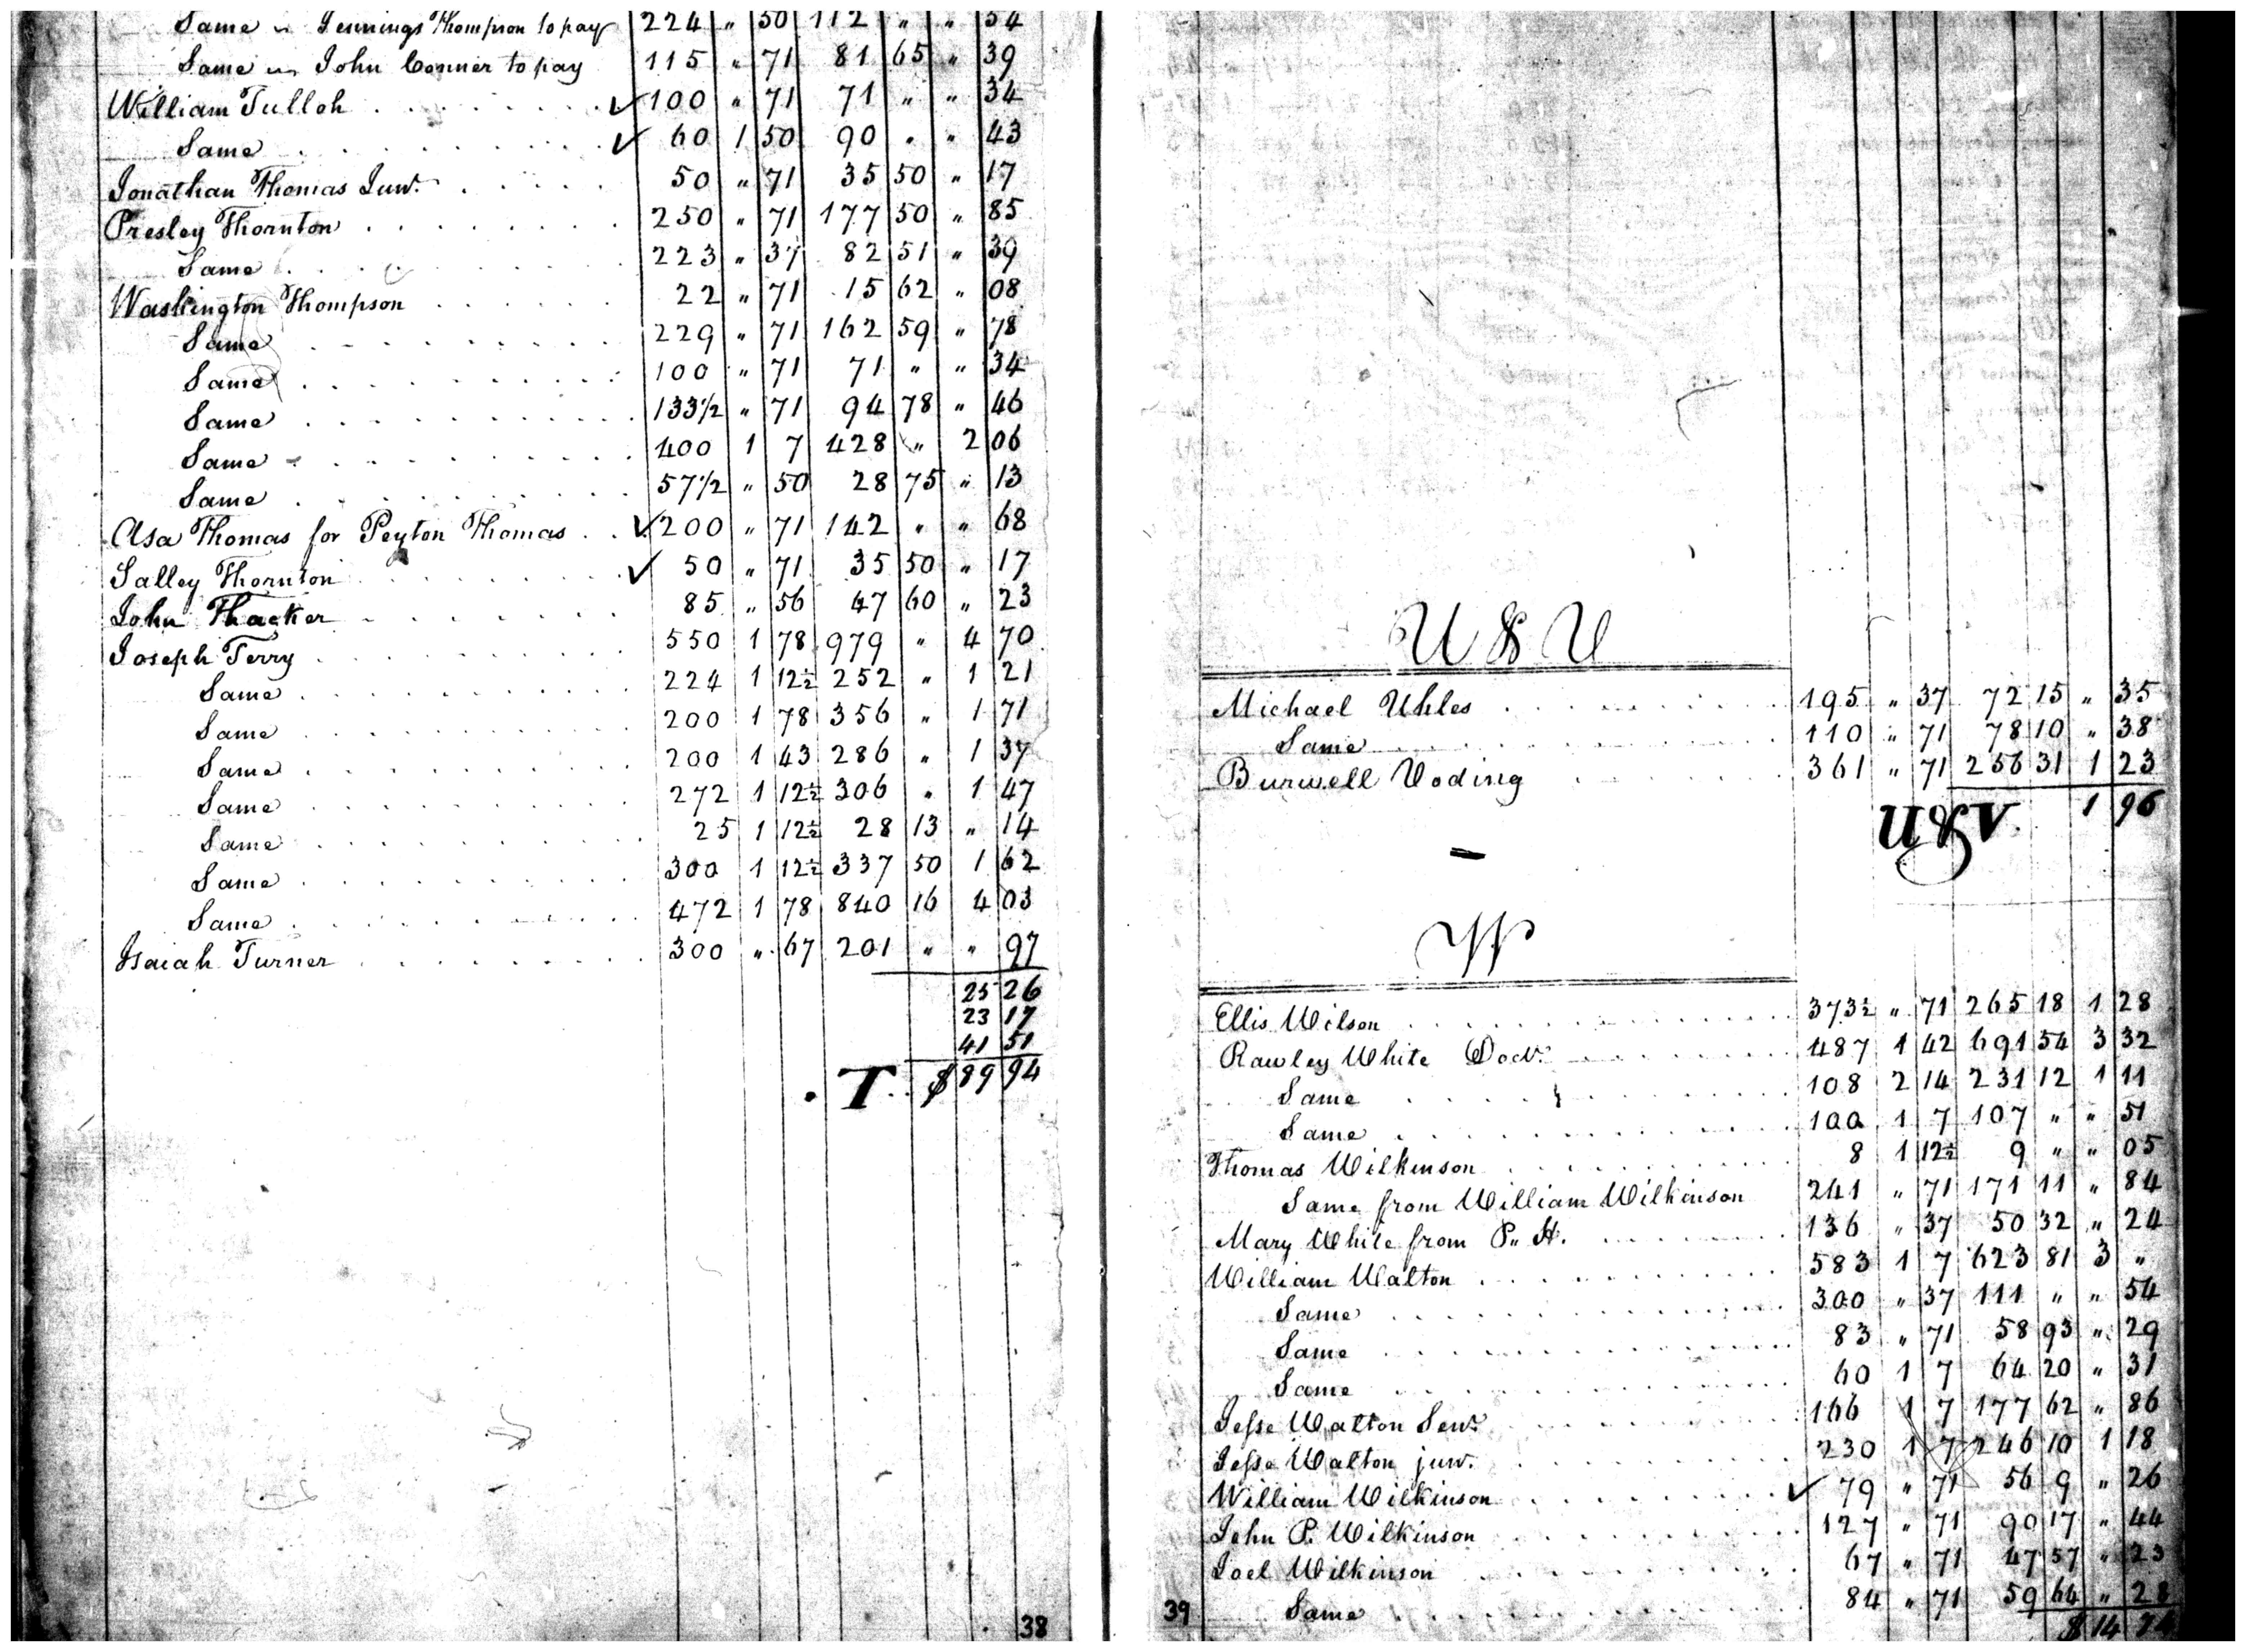 Same " Jennings Thompson to pay 224 " 50 112 " " 54
Same " John Conner to pay 115 " 71 81 65 " 39
William Tulloh ✓ 100 " 71 71 " " 34
Same ✓ 60 1 50 90 " " 43
Jonathan Thomas Junr. 50 " 71 35 50 " 17
Presley Thornton 250 " 71 177 50 " 85
Same 223 " 37 82 51 " 39
Washington Thompson 22 " 71 15 62 " 08
Same 229 " 71 162 59 " 78
Same 100 " 71 71 " " 34
Same 133 1/2 " 71 94 78 " 46
Same 400 1 7 428 " 2 06
Same 57 1/2 " 50 28 75 " 13
Asa Thomas for Peyton Thomas ✓ 200 " 71 142 " " 68
Salley Thornton ✓ 50 " 71 35 50 " 17
John Thacker 85 " 56 47 60 " 23
Joseph Terry 550 1 78 979 " 4 70
Same 224 1 12 1/2 252 " 1 21
Same 200 1 78 356 " 1 71
Same 200 1 43 286 " 1 37
Same 272 1 12 1/2 306 " 1 47
Same 25 1 12 1/2 28 13 " 14
Same 300 1 12 1/2 337 50 1 62
Same 472 1 78 840 16 4 03
Isaiah Turner 300 " 67 201 " " 97
25 26
23 17
41 51
T. $ 89 94
38
U & V
Michael Uhles 195 " 37 72 15 " 35
Same 110 " 71 78 10 " 38
Burwell Voding 361 " 71 256 31 1 23
U&V 1 96
W
Ellis Wilson 373 1/2 " 71 265 18 1 28
Rawley White Docr. 487 1 42 691 54 3 32
Same 108 2 14 231 12 1 11
Same 100 1 7 107 " " 51
Thomas Wilkinson 8 1 12 1/2 9 " " 05
Same from William Wilkinson 241 " 71 171 11 " 84
Mary White from P. H. 136 " 37 50 32 " 24
William Walton 583 1 7 623 81 3 "
Same 300 " 37 111 " " 54
Same 83 " 71 58 93 " 29
Same 60 1 7 64 20 " 31
Jesse Walton Senr. 166 1 7 177 62 " 86
Jesse Walton junr. 230 1 7 246 10 1 18
William Wilkinson ✓ 79 " 71 56 9 " 26
John P. Wilkinson 127 " 71 90 17 " 44
Joel Wilkinson 67 " 71 47 57 " 23
Same 84 " 71 59 64 " 28
39 $ 14